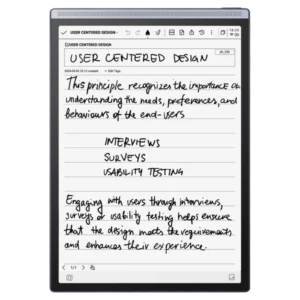 USER CENTERED DESIGN -
USER CENTERED DESIGN
USER CENTERED DESIGN
This principle recognizes the importance on
understanding the needs, preferences, and
behaviours of the end-users
INTERVIEWS
SURVEYS
USABILITY TESTING
Engaging with users through interviews,
surveys or usability testing helps ensure
that the design meets the requirements
and enhances their experience.
1/1